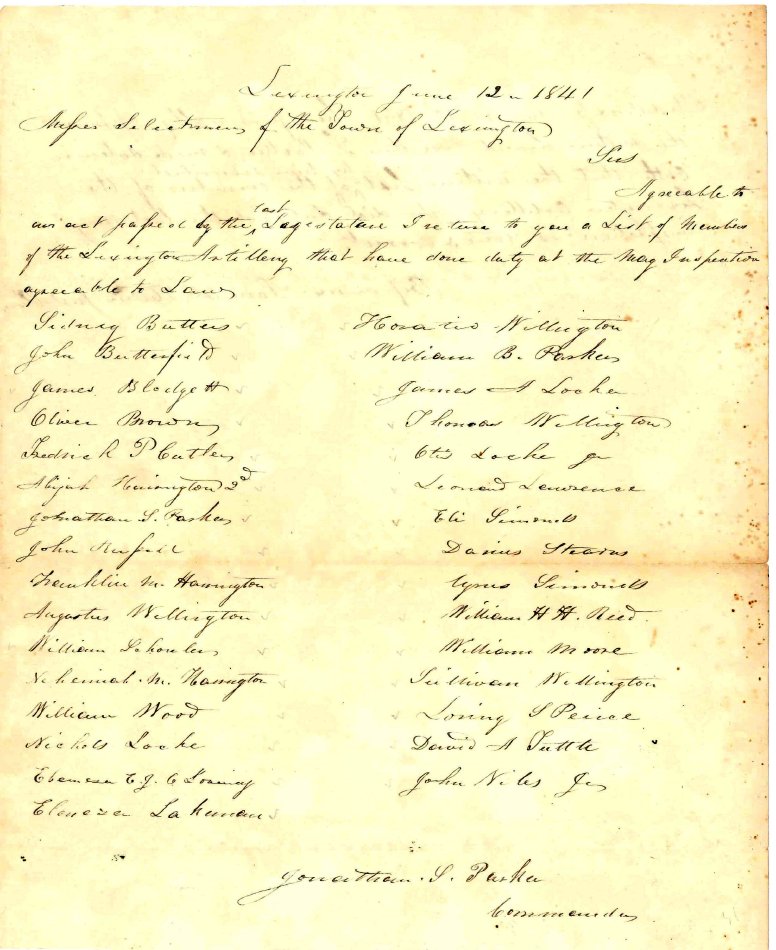 Lexington June 12 1841
Messrs Selectmen of the Town of Lexington
Sirs
Agreeable to
an act passed by the last Legistature I return to you a List of Members
of the Lexington Artillery that have done duty at the May Inspection
agreeable to Law
Sidney Butters
John Butterfield
James Blodgett
Oliver Brown
Fredrick P Cutler
Abijah Harrington 2d
Jonathan S. Parker
John
Franklin M. Harrington
Augustus Wellington
William
Nehemiah M. Harrington
William Wood
Nichols Locke
Ebenezer
Ebenezer Lakeman
Horatio Wellington
William B. Parker
James A Locke
Thomas Wellington
Otis Locke Jr
Leonard Lawrence
Eli Simonds
Darius Stearns
Cyrus Simonds
William H H. Reed
William Moore
Sullivan Wellington
Loring S Peirce
David A Tuttle
John Niles Jr
Jonathan. S. Parker
Commander